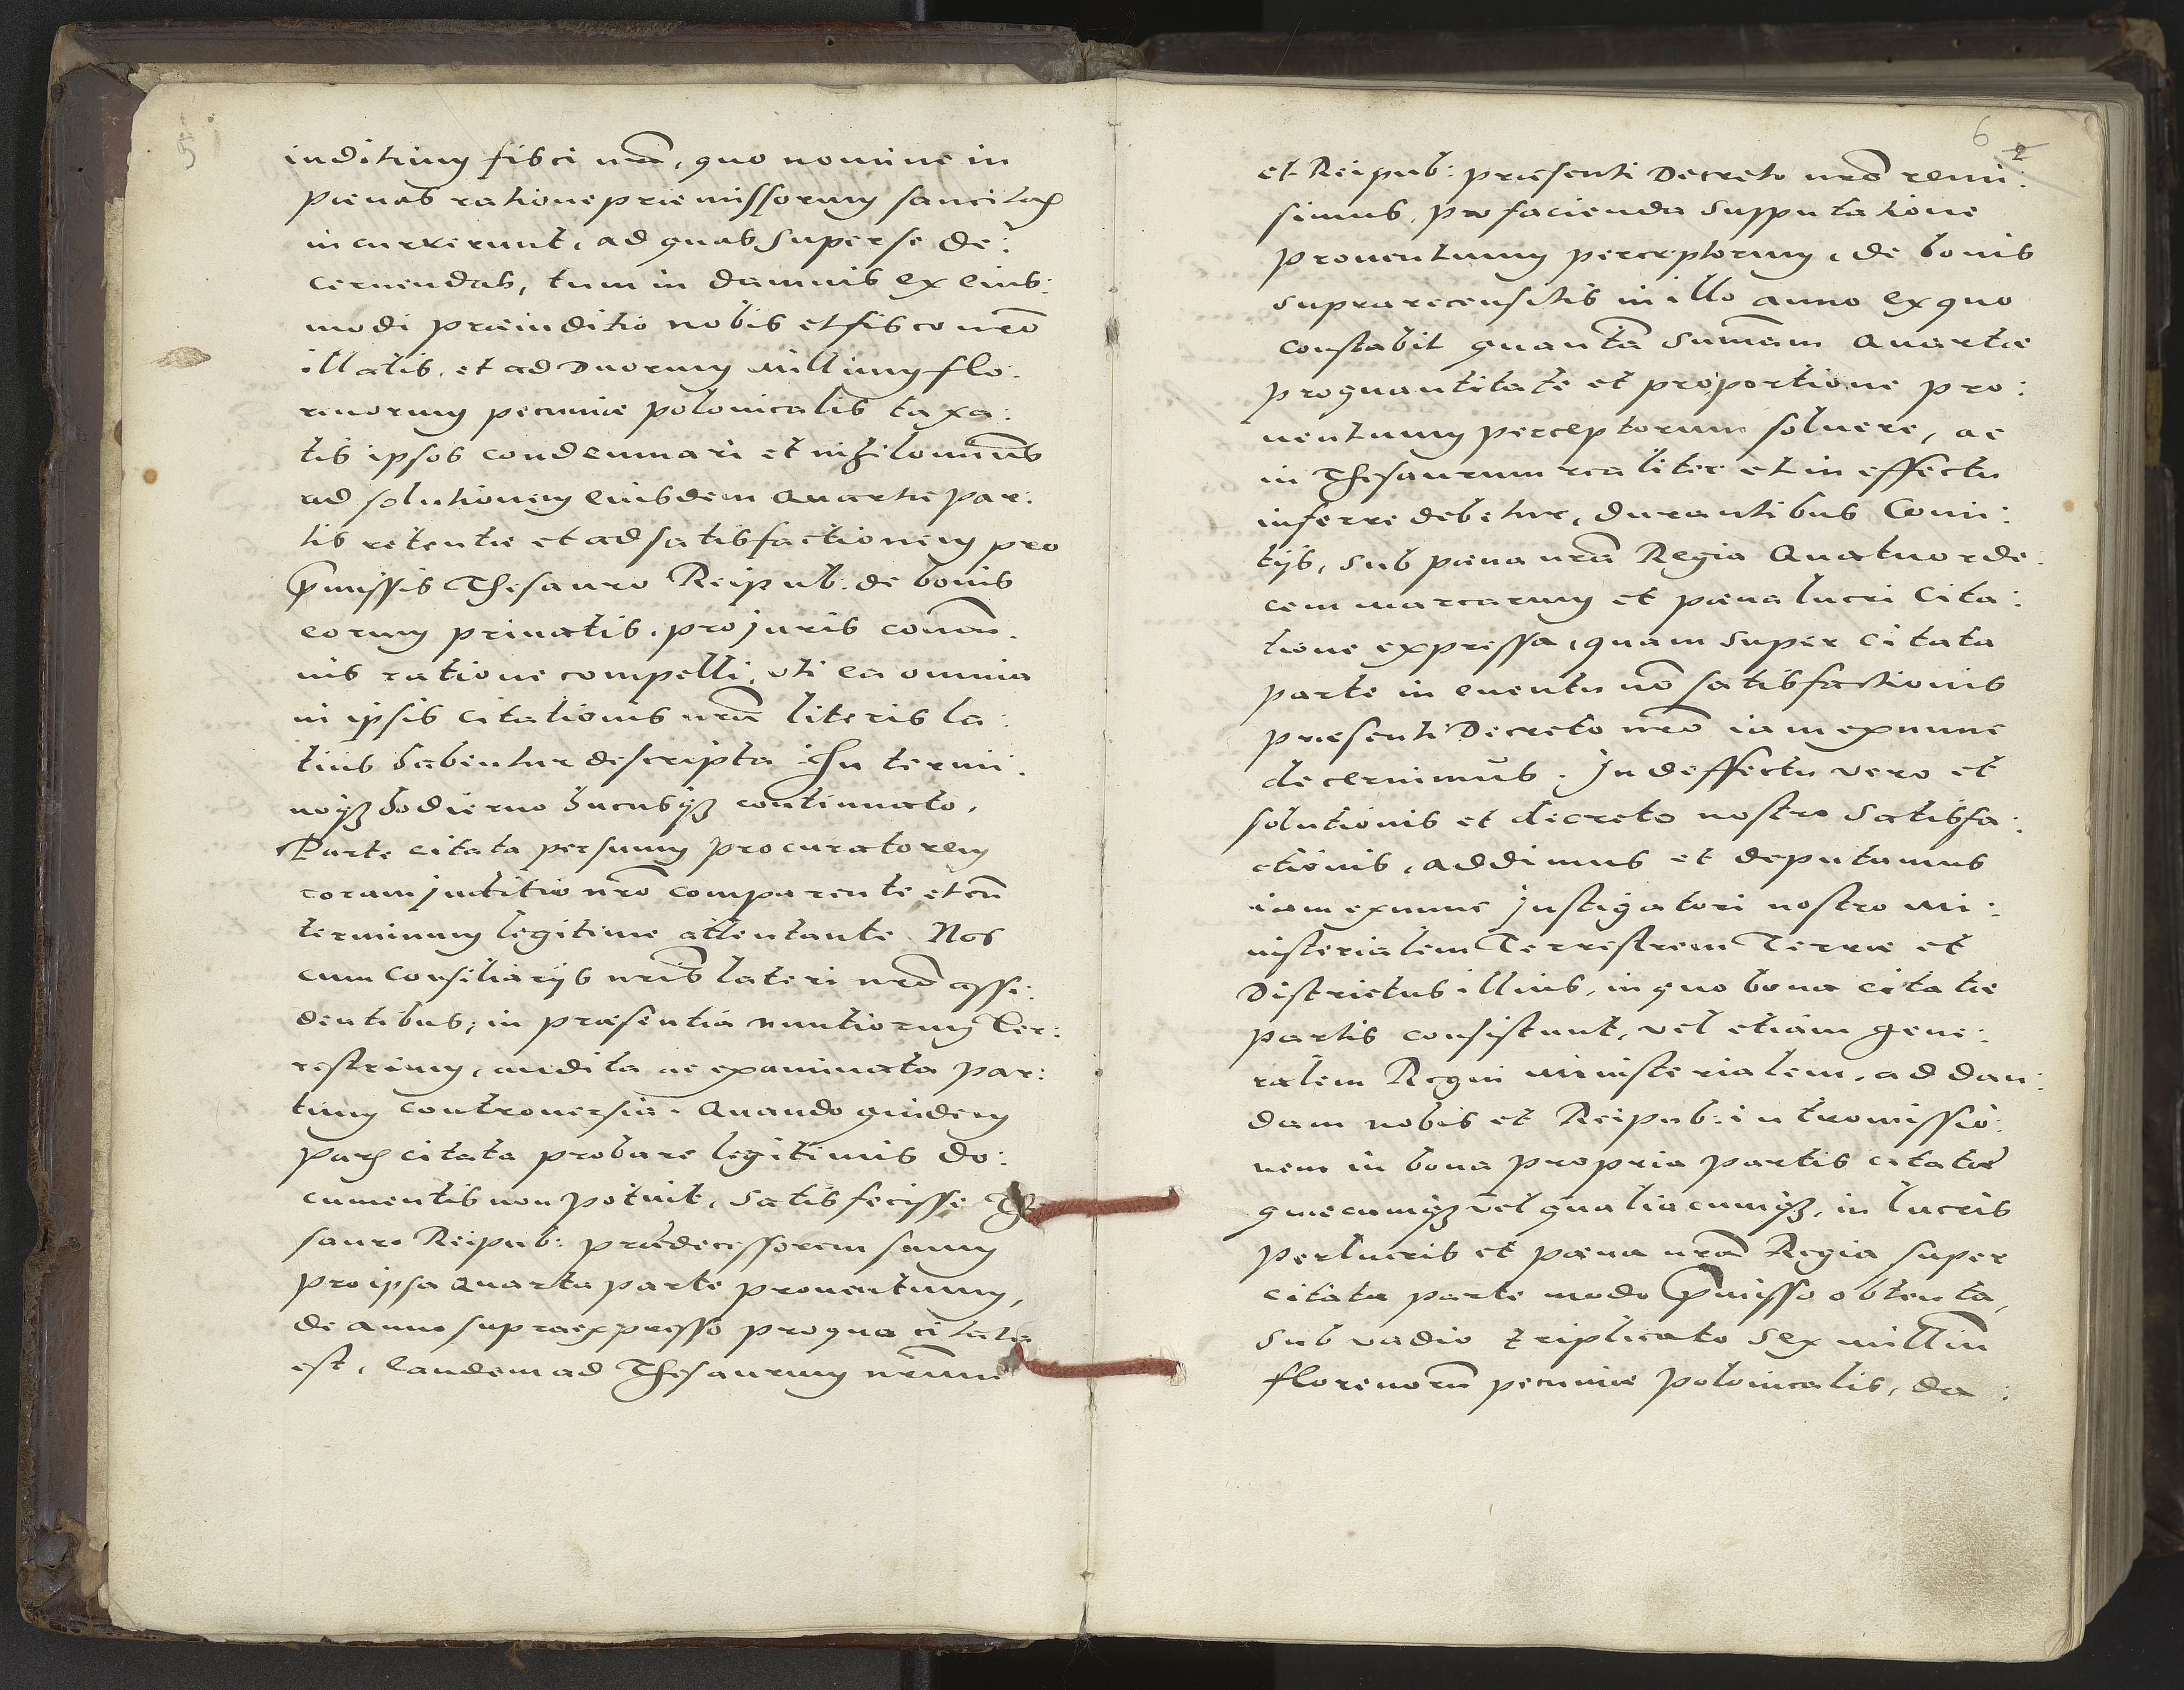 5
iuditium fisci nrã, quo nomine in
pænas ratione præmissorum sancitas
incurrerunt, ad quas super se de:
cernendas, tum in damnis ex eius:
modi præiuditio nobis et fisco nrõ
illatis, et ad Duorum millium flo:
renorum pecuniæ polonicalis taxa:
tis ipsos condemnari et nihilominus
ad solutionem eiusdem Quartæ par:
tis retentæ et ad satisfactionem pro
p̄missis Thesauro Reipub: de bonis
eorum priuatis, pro juris comũ:
nis ratione compelli, uti ea omnia
in ipsis citationis nrã literis la:
tius habentur descripta. In termi:
noq3 hodierno hucusq3 continuato,
Parte citata per suum procuratorem
coram juditio nrõ comparente et eũ
terminum legitime attentante. Nos
cum Consiliarijs nrĩs lateri nrõ assi:
dentibus, in præsentia nuntiorum Ter:
restrium, audita ac examinata par:
tium controuersia. Quandoquidem
pars citata probare legitimis do:
cumentis non potuit, satisfecisse The
sauro Reipub: prædecessorem suum
pro ipsa Quarta parte prouentuum,
de anno supraexpresso pro qua citata
est, Eandem ad Thesaurum nrũm
6 2
et Reipub: præsenti Decreto nrõ remi:
simus, pro facienda supputatione
prouentuum perceptorum, de bonis
suprarecensitis in illo anno ex quo
constabit quantã sumam Quartæ
pro quantitate et proportione pro:
uentuum perceptorum soluere, ac
in Thesaurum realiter et in effectu
inferre debetur, durantibus Comi:
tijs, sub pæna nrã Regia Quatuorde:
cem marcarum et pæna lucri Cita:
tione expressa, quam super citata
parte in euentu nõ satisfactionis
præsenti Decreto nrõ iam ex nunc
decernimus. In deffectu vero et
solutionis et decreto nostro satisfa:
ctionis, addimus et deputamus
iam ex nunc Instigatori nostro mi:
nisterialem Terrestrem Terræ et
Districtus illius, in quo bona citatæ
partis consistunt, vel etiam gene:
ralem Regni ministerialem, ad dan:
dam nobis et Reipub: intromissio:
nem in bona propria partis citatæ
quæcumq3 vel qualiacumq3, in lucris
perlucris et pæna nrã Regia super
citata parte modo p̄misso obtenta,
sub vadio triplicato sex milliũ
florenorũ pecuniæ polonicalis, da: